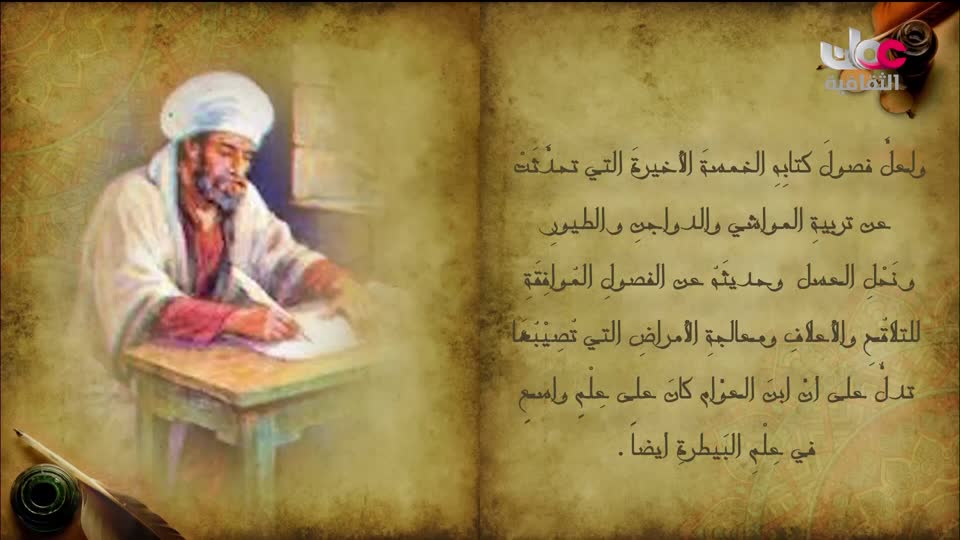 عمان
الثقافية
ولعلَّ فصولَ كتابِهِ الخمسةَ الأخيرةَ التي تحدَّثَتْ
عن تربيةِ المواشي والدواجنِ والطيورِ
ونَحْلِ العسل وحديثَهُ عن الفصولِ المُوافِقَةِ
للتلاقُحِ والأعلافِ ومعالجةِ الأمراضِ التي تُصِيْبُهَا
تدلُّ على انّ ابنَ العوّام كانَ على عِلْمٍ واسعٍ
في عِلْمِ البَيطرةِ أيضاً .